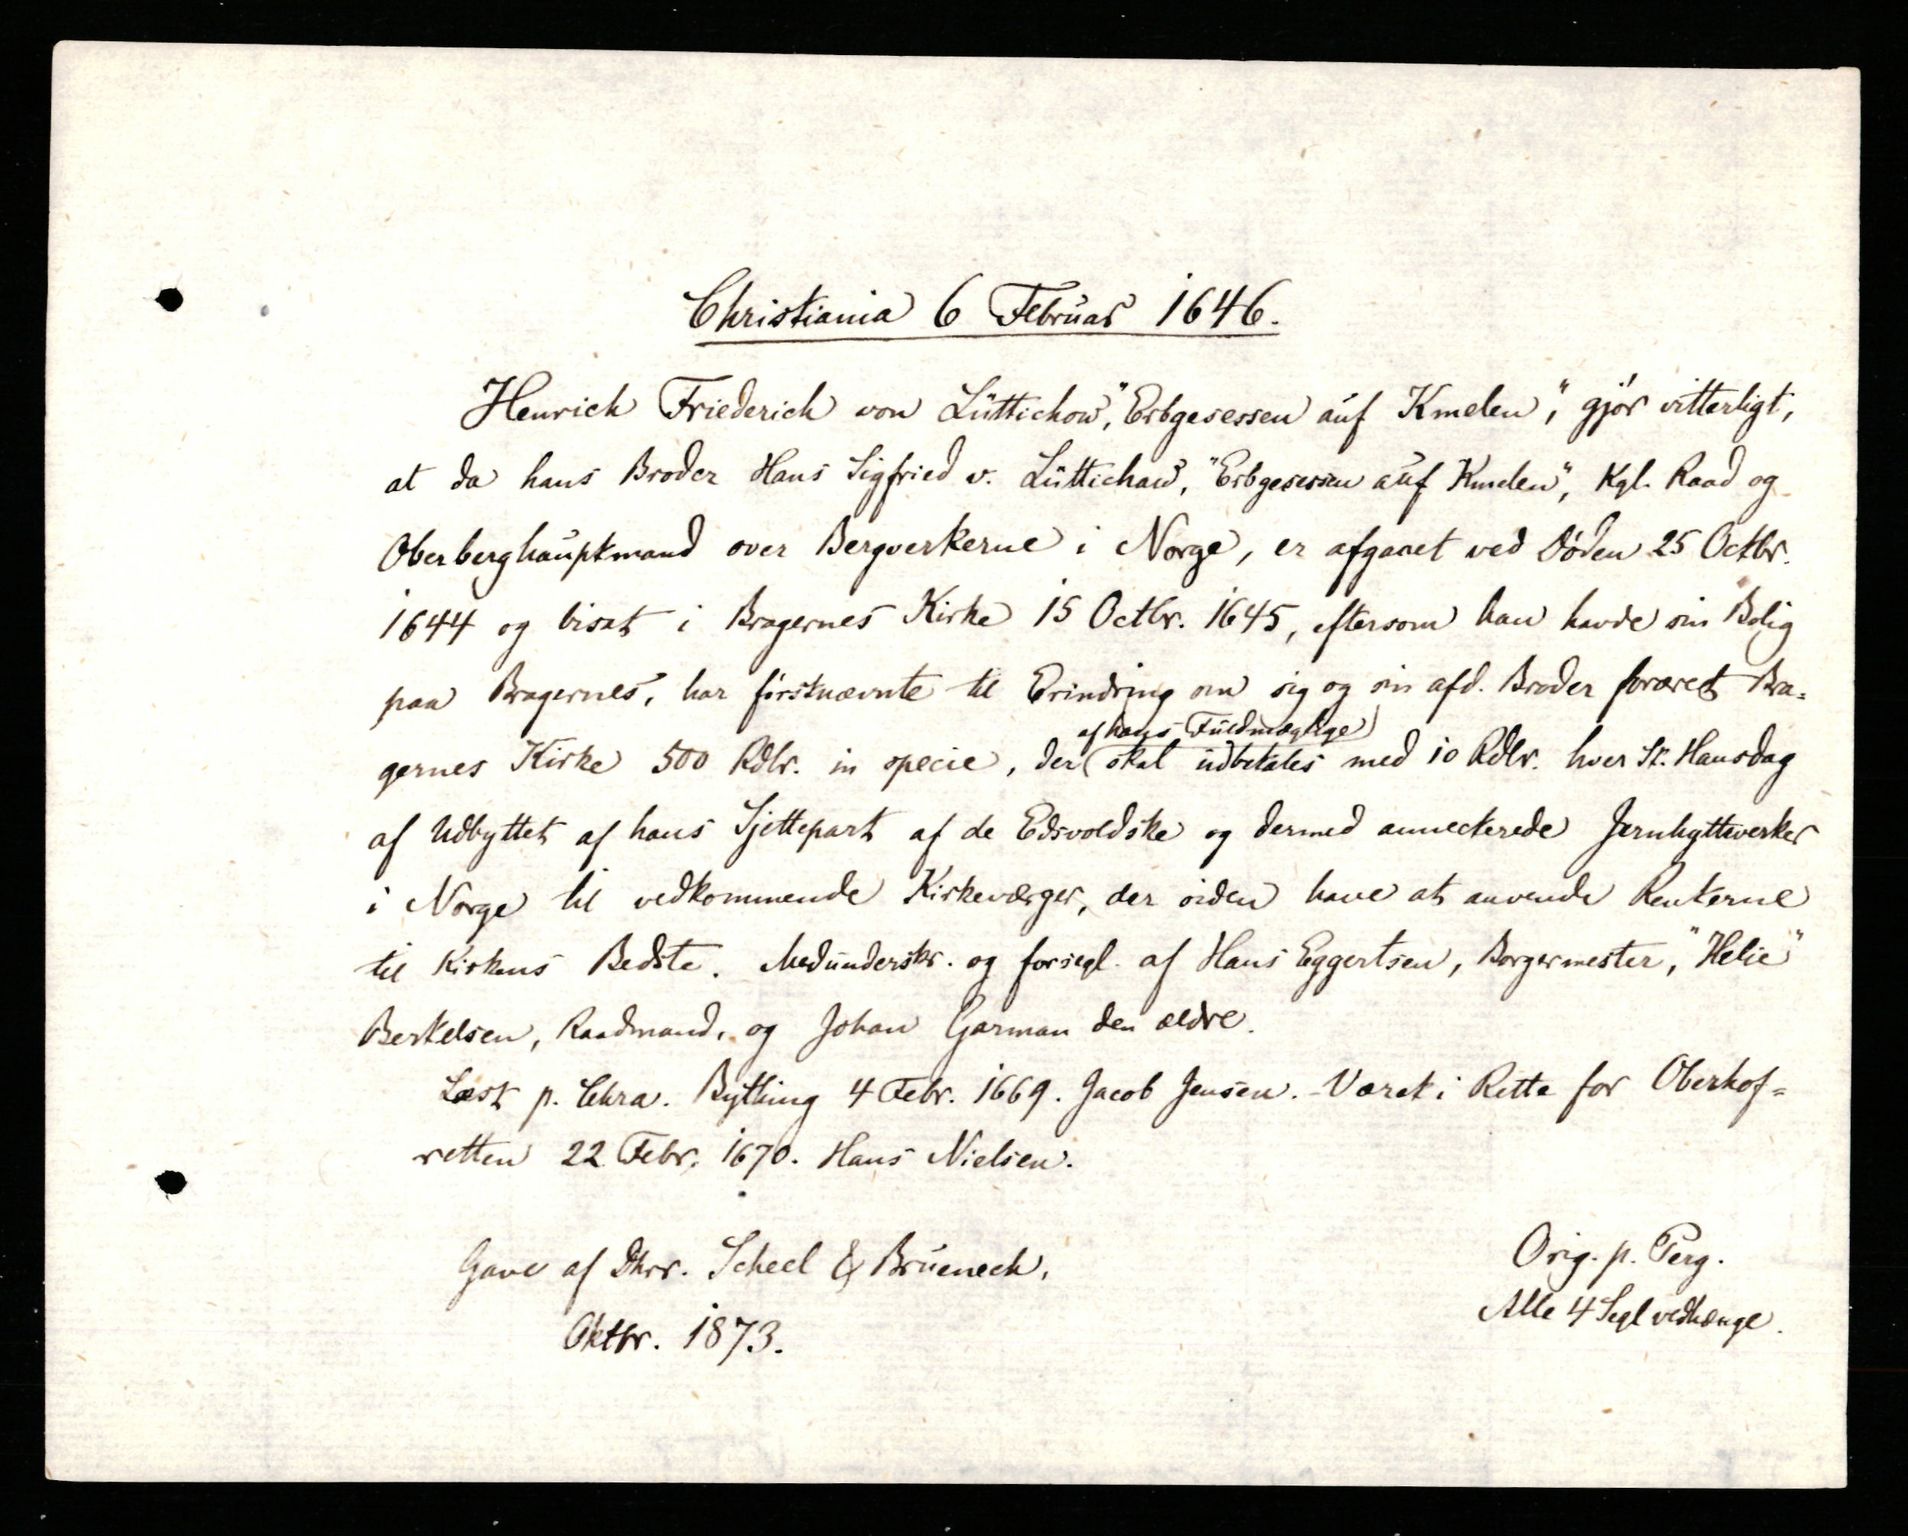 Christiania 6 Februar 1646.
Henrich Friederich von Lüttichow, "Erbgesessen auf Kmelen", gjør vitterligt,
at da hans Broder Hans Sigfried v. Lüttichau, "Erbgesessen auf Kmelen", Kgl. Raad og
Oberberghauptmand over Bergverkerne i Norge, er afgaaet ved Døden 25 Octbr.
1644 og bisat i Bragernes Kirke 15 Octbr. 1645, eftersom han havde sin Bolig
paa Bragernes, har førstnævnte til Erindring om sig og sin afd. Broder foræret Bra=
af hans Fuldmægtige
gernes Kirke 500 Rdlr. in specie, der skal udbetales med 10 Rdlr. hver St. Hansdag
af Udbyttet af hans Sjettepart af de Edsvoldske og dermed annecterede Jernhytteverker
i Norge til vedkommende Kirkeværger, der siden have at anvende Renterne
til Kirkens Bedste. Medunderskr. og forsegl. af Hans Eggertsen, Borgermester, "Helie"
Bertelsen, Raadmand, og Johan Garman den ældre.
Læst p. Chra. Bything 4 Febr. 1669. Jacob Jensen. - Været i Rette for Oberhof=
retten 22 Febr. 1670. Hans Nielsen.
Gave af Dhrr. Scheel & Brüenech.
Oktbr. 1873.
Orig. p. Perg.
Alle 4 Segl vedhænge.